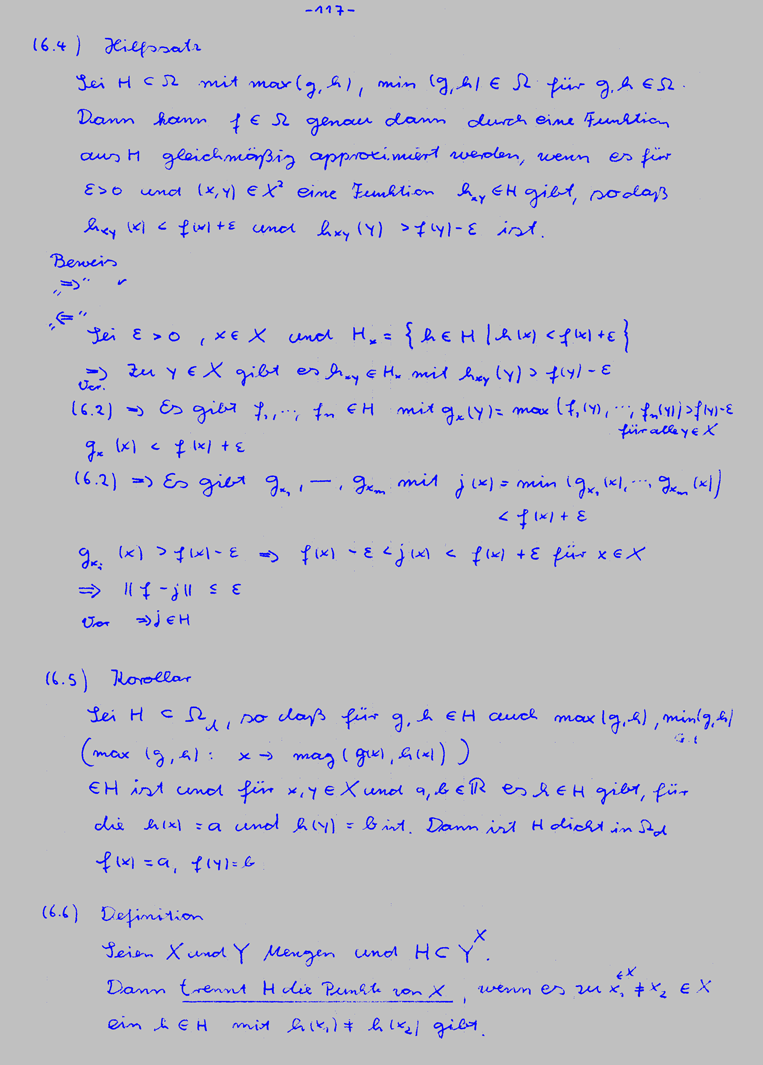 -117-
(6.4) Hilfssatz
Sei H ⊂ Ω mit max(g,h), min (g,h) ∈ Ω für g,h ∈ Ω.
Dann kann f ∈ Ω genau dann durch eine Funktion
aus H gleichmäßig approximiert werden, wenn es für
ε>0 und (x,y) ∈ X² eine Funktion hₓᵧ ∈ H gibt, sodaß
hₓᵧ (x) < f(x)+ε und hₓᵧ (y) > f(y)-ε ist.
Beweis
„⇒" ✓
„⇐"
Sei ε > 0 , x ∈ X und Hₓ = { h ∈ H | h(x) < f(x)+ε }
⇒ Zu y ∈ X gibt es hₓᵧ ∈ Hₓ mit hₓᵧ (y) > f(y) - ε
Vor.
(6.2) ⇒ Es gibt f₁, ..., fₙ ∈ H mit gₓ(y) = max (f₁(y), ..., fₙ(y)) > f(y)-ε
für alle y ∈ X
gₓ (x) < f(x)+ε
(6.2) ⇒ Es gibt gₓ₁, —, gₓₘ mit j(x) = min (gₓ₁(x), ..., gₓₘ(x))
< f(x) + ε
gₓᵢ (x) > f(x) - ε ⇒ f(x) - ε < j(x) < f(x) + ε für x ∈ X
⇒ || f - j || ≤ ε
Vor ⇒ j ∈ H
(6.5) Korollar
Sei H ⊂ Ω, so daß für g, h ∈ H auch max(g,h), min(g,h)
(max (g,h) : x → mag (g(x), h(x)) )
∈ H ist und für x,y ∈ X und a,b ∈ ℝ es h ∈ H gibt, für
die h(x) = a und h(y) = b ist. Dann ist H dicht in Ω
f(x) = a, f(y) = b
(6.6) Definition
Seien X und Y Mengen und H ⊂ Y^X.
Dann trennt H die Punkte von X, wenn es zu x₁ ∈X ≠ x₂ ∈ X
ein h ∈ H mit h(x₁) ≠ h(x₂) gibt.